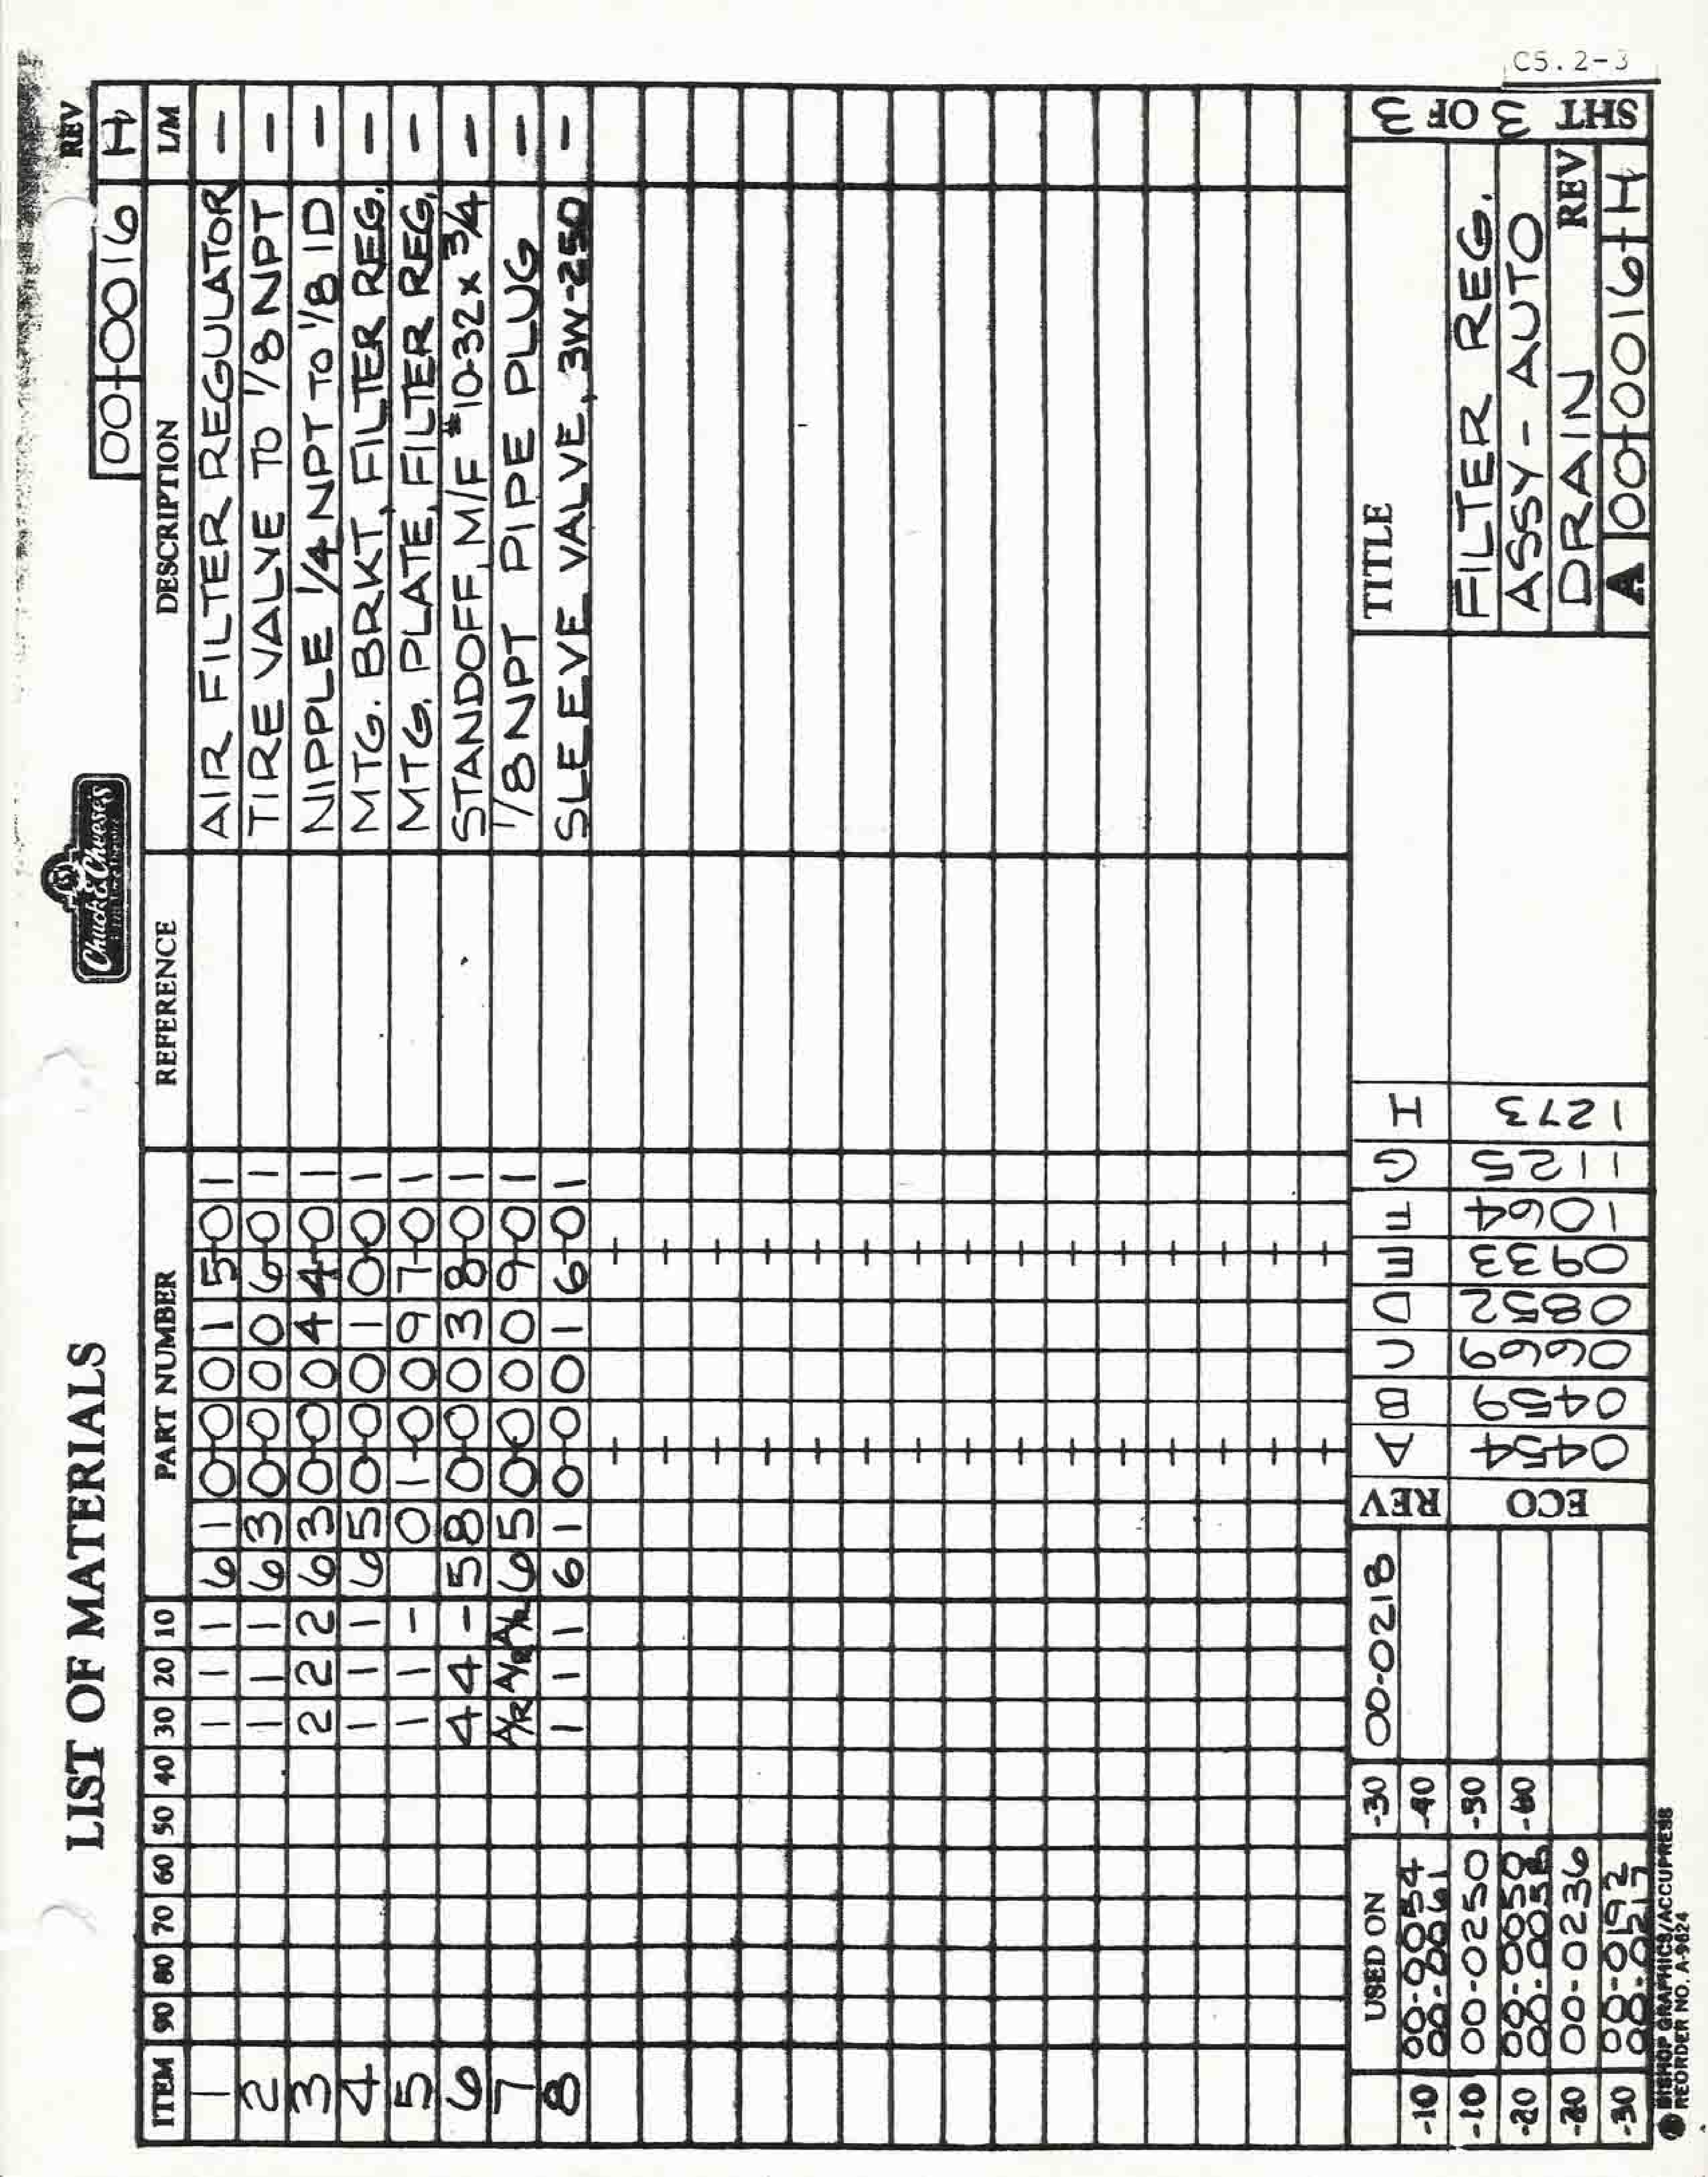 C5.2-3
LIST OF MATERIALS
Chuck E. Cheese's
REV
00-0016 H
ITEM 90 80 70 60 50 40 30 20 10 PART NUMBER REFERENCE DESCRIPTION L/M
1 1 1 1 61 00-0015-01 AIR FILTER REGULATOR -
2 1 1 1 63 00-0006-01 TIRE VALVE TO 1/8 NPT -
3 2 2 2 63 00-0044-01 NIPPLE 1/4 NPT TO 1/8 ID -
4 1 1 1 65 00-0010-01 MTG. BRKT, FILTER REG. -
5 1 1 - 01-0097-01 MTG. PLATE, FILTER REG. -
6 4 4 - 58 00-0038-01 STANDOFF, M/F #10-32 x 3/4 -
7 A/R A/R A/R 65 00-0009-01 1/8 NPT PIPE PLUG -
8 1 1 1 61 00-0016-01 SLEEVE VALVE, 3W-250 -
USED ON
-10 00-0054
00-0061
-10 00-0250
-20 00-0050
-20 00-0236
-30 00-0192
00-0217
-30 00-0218
-40
-50
-60
REV A B C D E F G H
ECO 0454 0459 0669 0852 0933 1064 1125 1273
TITLE
FILTER REG.
ASSY - AUTO
DRAIN
REV
A 00-0016 H
SHT 3 OF 3
BISHOP GRAPHICS/ACCUPRESS
REORDER NO. A-9624